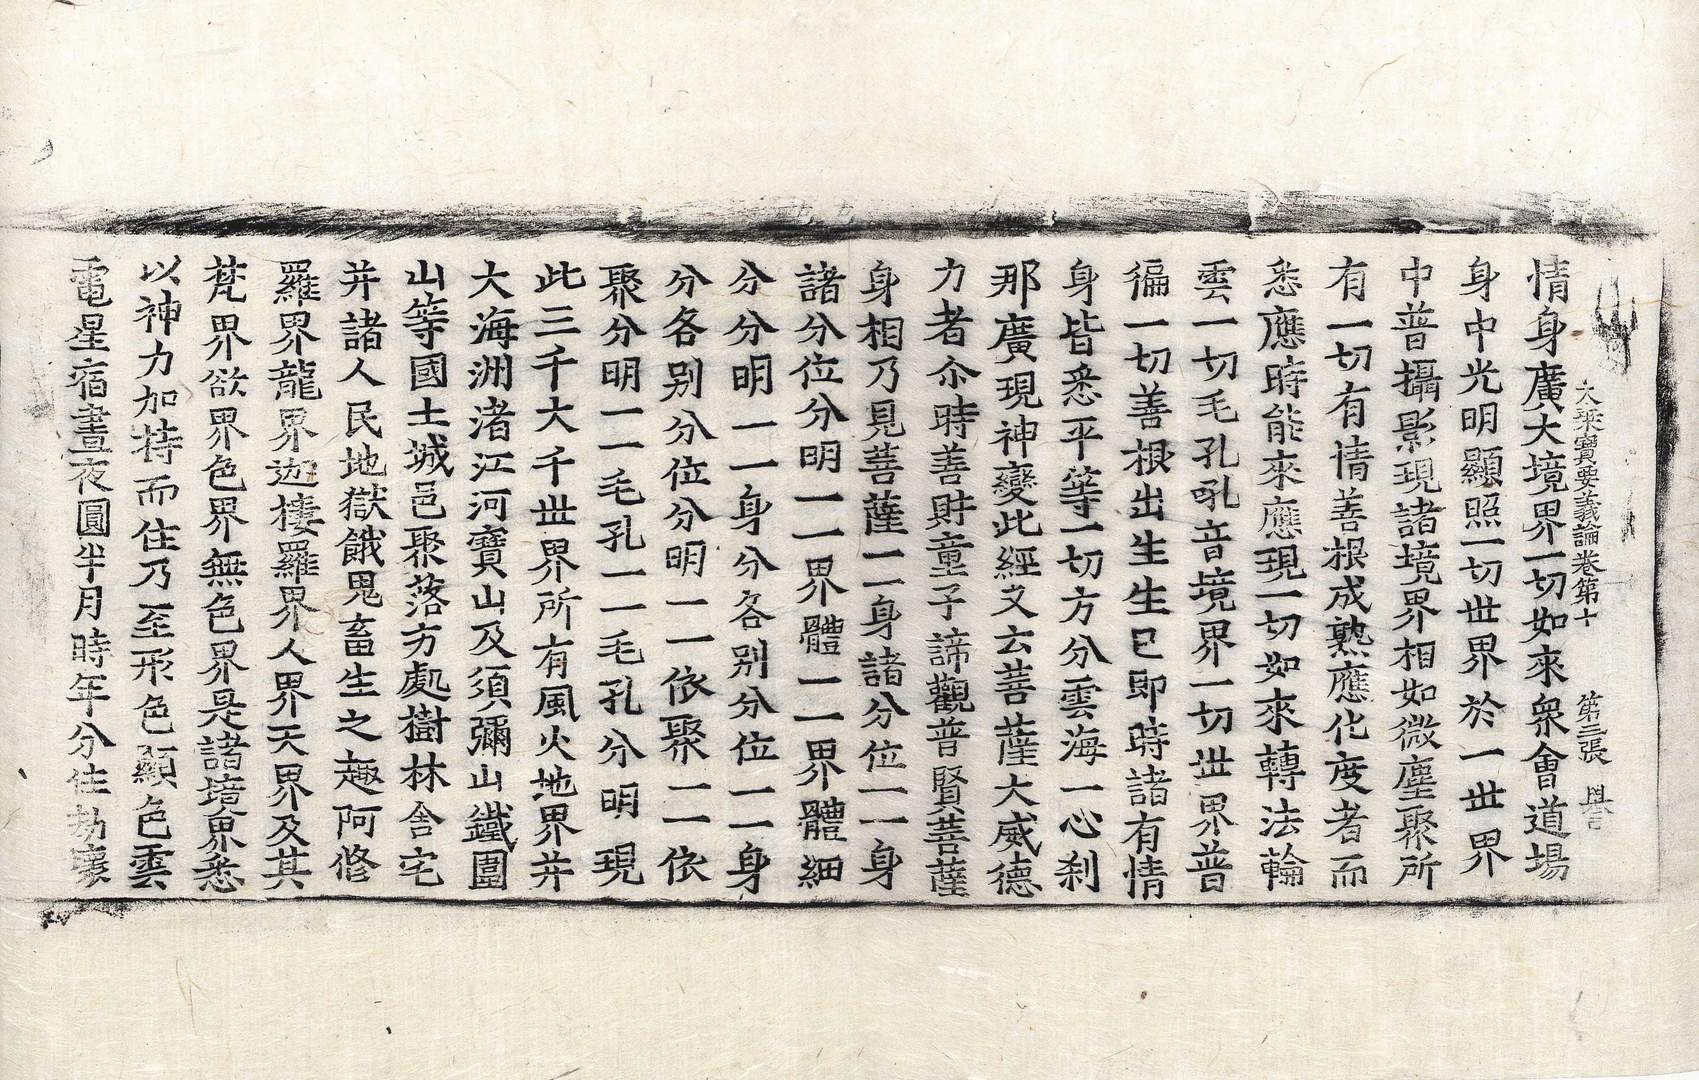 大乘寶要義論卷第十　第三張　譽
情身廣大境界一切如來衆會道場
身中光明顯照一切世界於一世界
中普攝影現諸境界相如微塵聚所
有一切有情善根成熟應化度者而
悉應時能來應現一切如來轉法輪
雲一切毛孔吼音境界一切世界普
徧一切善根出生生已即時諸有情
身皆悉平等一切方分雲海一心刹
那廣現神變此經又云菩薩大威德
力者尒時善財童子諦觀普賢菩薩
身相乃見菩薩一一身諸分位一一身
諸分位分明一一界體一一界體細
分分明一一身分各别分位一一身
分各别分位分明一一依聚一一依
聚分明一一毛孔一一毛孔分明現
此三千大千世界所有風火地界并
大海洲渚江河寶山及須彌山鐵圍
山等國土城邑聚落方處樹林舍宅
并諸人民地獄餓鬼畜生之趣阿修
羅界龍界迦樓羅界人界天界及其
梵界欲界色界無色界是諸境界悉
以神力加持而住乃至形色顯色雲
電星宿晝夜圓半月時年分住劫壞